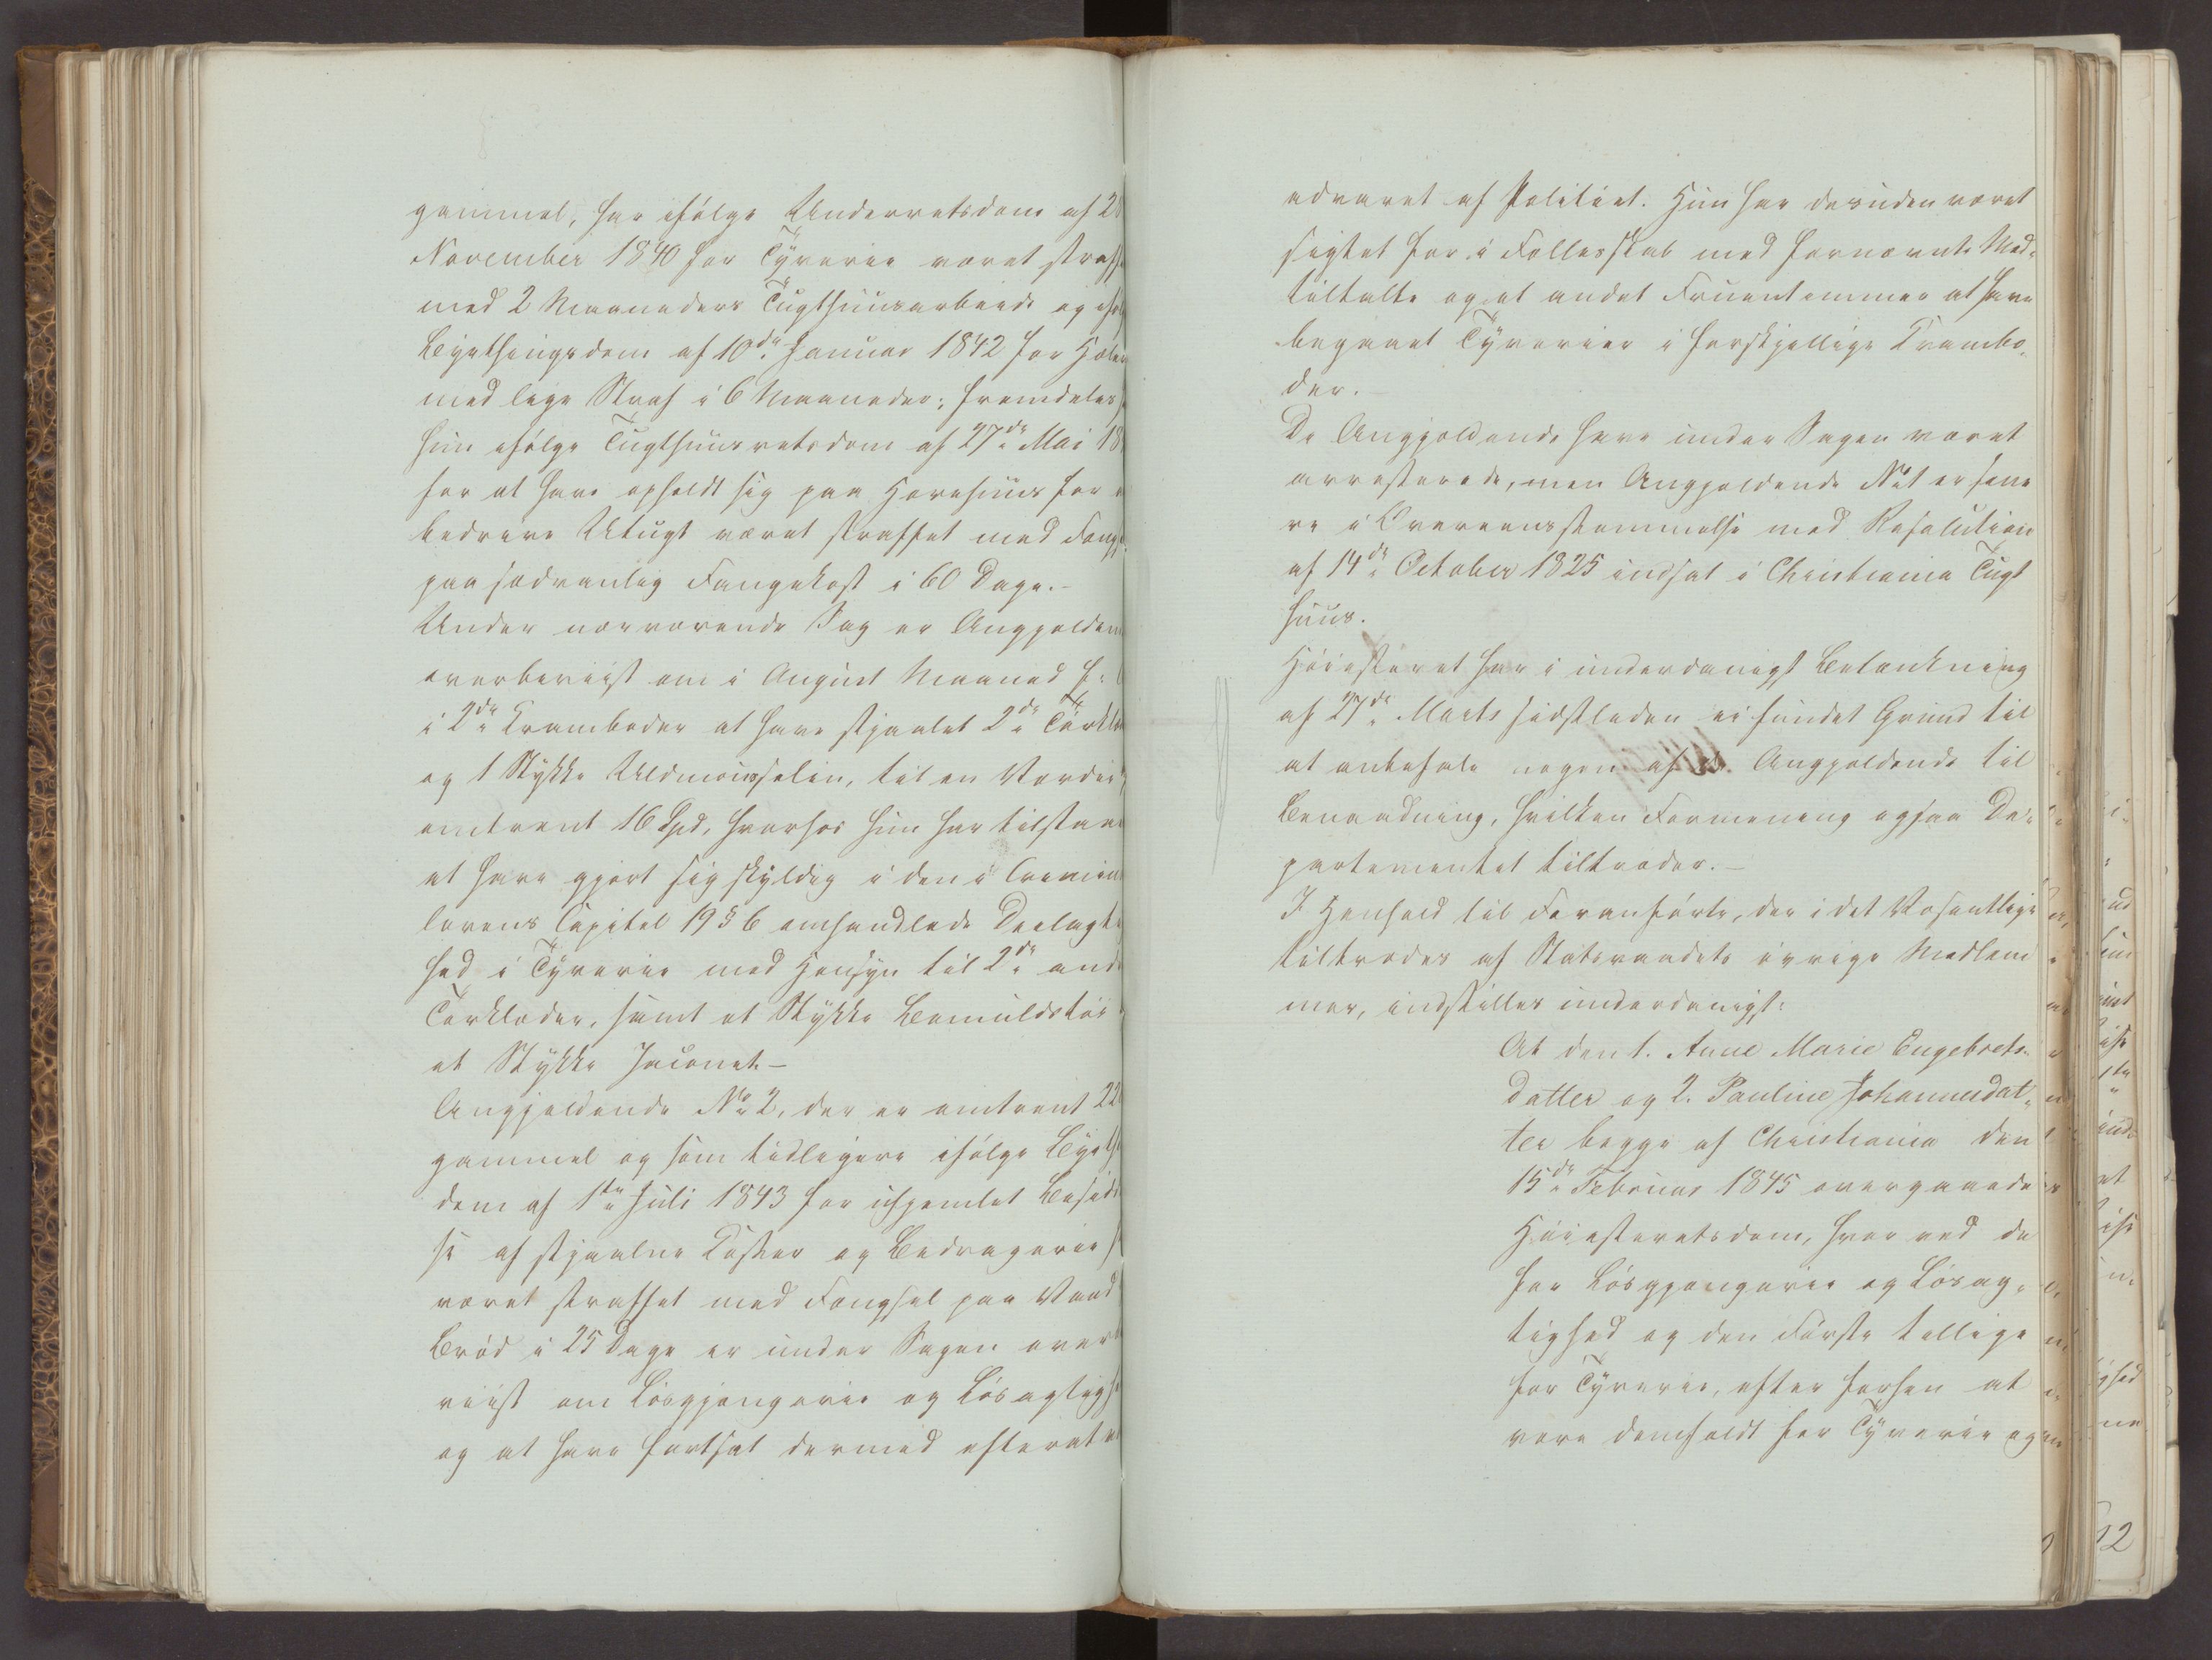 gammel, har ifølge Underretsdom af 2
November 1840 for Tyverie været straff
med 2 Maaneders Tugthuusarbeide og ifølg
Byethingsdom af 10de Januar 1842 for Hæler
med lige Straf i 6 Maaneder; fremdeles
hun ifølge Tugthuusretsdom af 27de Mai 18
for at have opholdt sig paa Horehuus for
bedreive Utugt været straffet med Fængs
paa sædvanlig Fangekost i 60 Dage.-
Under nærværende Sag er Angjælden
overbeviist om i August Maaned f:
i 2de Kramboder at have stjaalet 2de Tørklæ
og 1 Stykke Uldmousselin, til en Værdie
omtrent 16 Spd, hvorhos hun har tilstaae
at have gjort sig skyldig i den i Crimin
lovens Capitel 19 § 6 omhandlede Deelagt
hed i Tyverie med Hensyn til 2de and
Tørklæder, samt et Stykke Bomuldstøi
et Stykke Jaconet.-
Angjældende No 2, der er omtrent 22
gammel og som tidligere ifølge Byeth
dom af 1ste Juli 1843 for uhjemlet Besid
se af stjaalne Koster og Bedragerie
været straffet med Fængsel paa Vand
Brød i 25 Dage er under Sagen over
viist om Løsgjængerie og Løsagtigh
og at have fortsat dermed efterat
advaret af Politiet. Hun har desuden været
sigtet for i Fællesskab med fornævnte Med-
tiltalte og et andet Fruentemmer at have
begaaet Tyverier i forskjellige Krambo-
der.-
De Angjældende have under Sagen været
arresterede, men Angjældende No 1 er sene
re i Overeensstemmelse med Resolution
af 14de October 1825 indsat i Christiania Tugt
huus.
Høiesteret har i underdanigst Betænkning
af 27de Marts sidstleden ei fundet Grund til
at anbefale nogen af de Angjældende til
Benaadning, hvilken Formening ogsaa De-
partementet tiltræder.-
I Henhold til Foranførte, der i det Væsentlige
tiltrædes af Statsraadets øvrige Medlem
mer, indstilles underdanigst:
At den 1. Anne Marie Engebrets-
datter og 2. Pauline Johannesdat-
ter begge af Christiania den
15de Februar 1845 overgaaede
Høiesteretsdom, hvorved de
for Løsgjængerie og Løsag-
tighed og den Første tillige
for Tyverie, efter forhen at
være domfældt for Tyverie og